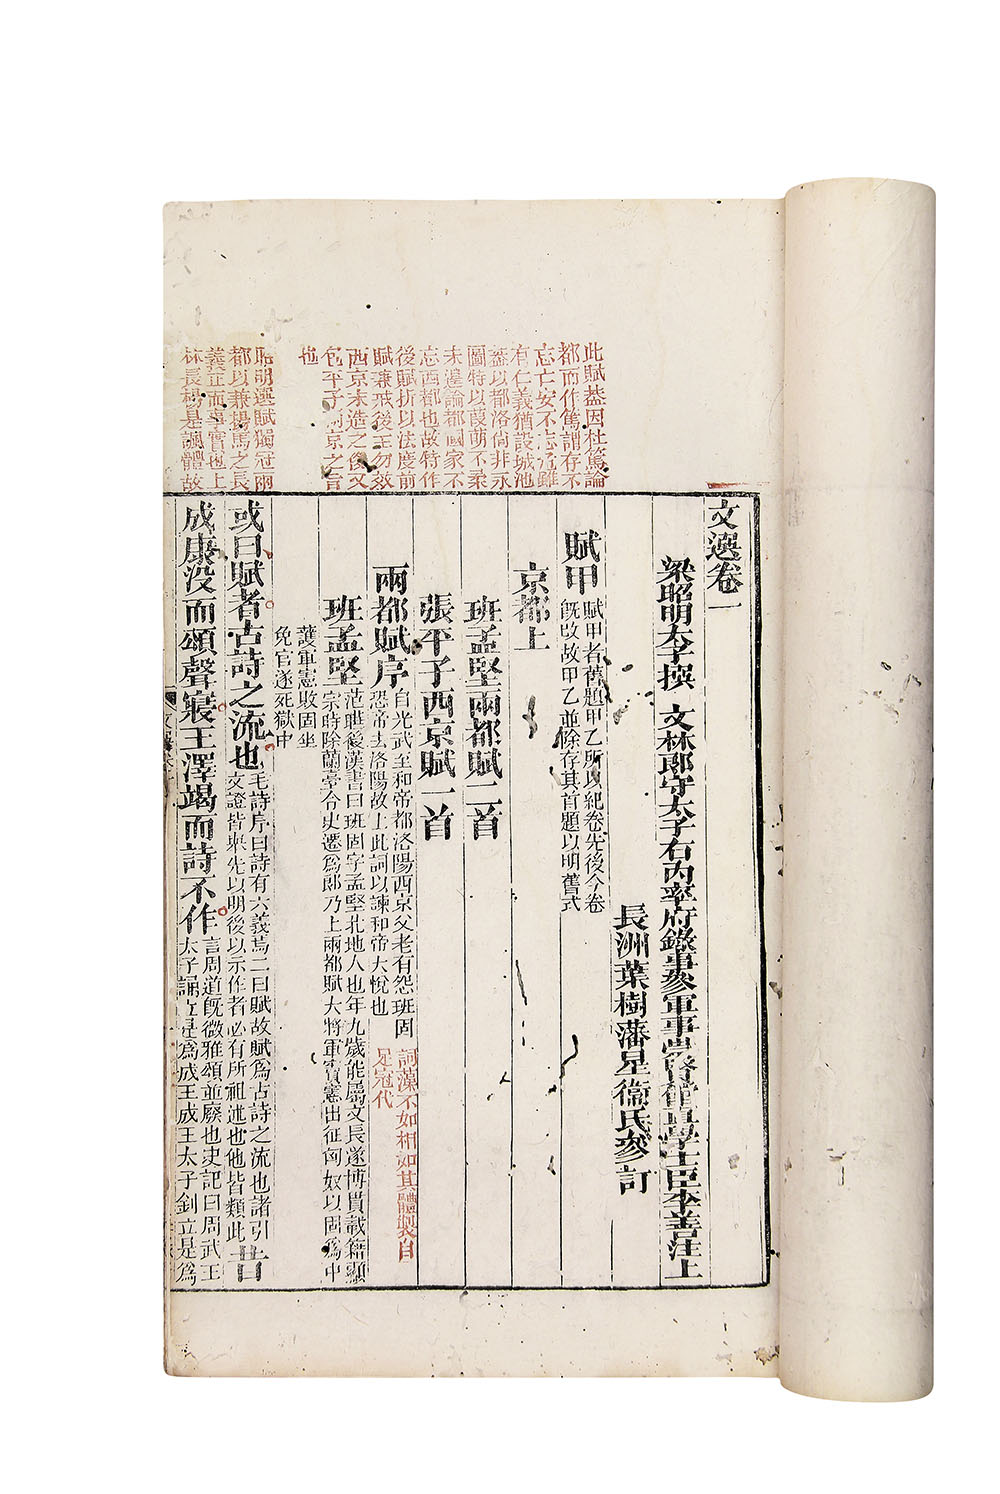 此賦葢因杜篤論
都而作篤謂存不
忘亡安不忘危雖
有仁義猶設城池
葢以都洛尚非永
圖特以葭萌不柔
未遑論都國家不
忘西都也故特作
後賦折以法度前
賦兼戒後王勿效
西京末造之侈又
包平子兩京之旨
也
昭明選賦獨冠兩
都以兼揚馬之長
義正而事實也上
林長楊是諷體故
文選卷一
梁昭明太子撰 文林郎守太子右內率府錄事參軍事崇賢館直學士臣李善注上
長洲葉樹藩星衛氏參訂
賦甲 賦甲者舊題甲乙所以紀卷先後今卷
旣改故甲乙並除存其首題以明舊式
京都上
班孟堅兩都賦二首
張平子西京賦一首
兩都賦序 自光武至和帝都洛陽西京父老有怨班固
恐帝去洛陽故上此詞以諫和帝大悅也
詞藻不如相如其體製自
足冠代
班孟堅 范曄後漢書曰班固字孟堅北地人也年九歲能屬文長遂博貫載籍顯
宗時除蘭臺令史遷爲郎乃上兩都賦大將軍竇憲出征匈奴以固爲中
護軍憲敗固坐
免官遂死獄中
或曰賦者古詩之流也 毛詩序曰詩有六義焉二曰賦故賦爲古詩之流也諸引
文證皆舉先以明後以示作者必有所祖述也他皆類此 昔
成康沒而頌聲寢王澤竭而詩不作 言周道旣微雅頌並廢也史記曰周武王
太子誦立是爲成王成王太子釗立是爲